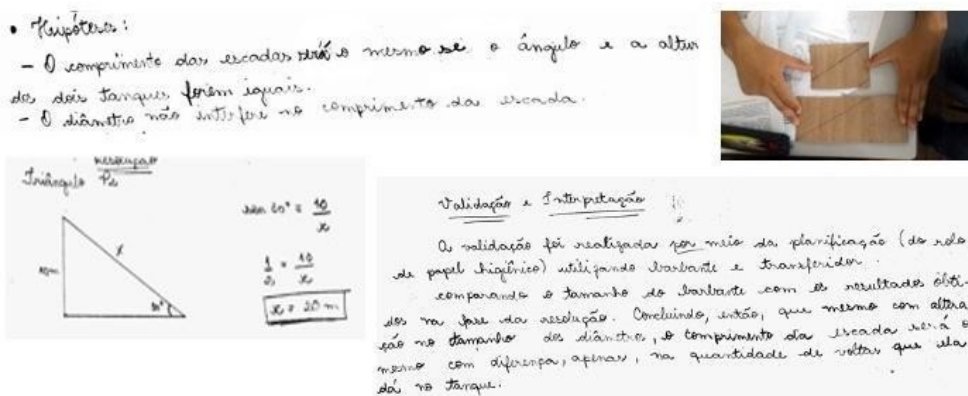 • Heipóteses:
- O comprimento das escadas será o mesmo se o ângulo e a altur
dos dois tanques forem iguais.
- O diâmetro não interfere no comprimento da escada.
resolução
Triângulo
x
10m
30°
= 10/x
1/2 = 10/x
x = 20 m
Validação e Interpretação
A validação foi realizada por meio da planificação (do rolo
de papel higiênico) utilizando barbante e transferidor.
comparando o tamanho do barbante com os resultados obti-
dos na fase da resolução. Concluindo, então, que mesmo com altera
ção no tamanho dos diâmetros, o comprimento da escada será o
mesmo com diferença, apenas, na quantidade de voltas que ela
dá no tanque.